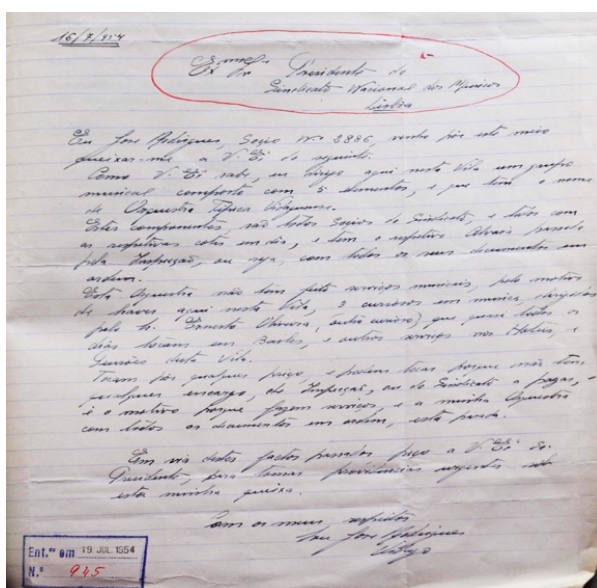 16/7/954
Exmo Sr. Presidente do
Sindicato Nacional dos Musicos
Lisboa
Eu Jose Rodrigues, Socio Nº 2886, venho por este meio
queixar-me a V. Exª do seguinte.
Como V. Exª sabe, eu dirigo aqui nesta Vila um grupo
musical composto com 5 elementos, e que tem o nome
de Orquestra Tipica Vidaguense.
Estes componentes, são todos Socios do Sindicato, e todos com
as respetivas cotas em dia, e tem o respetivo Alvará passado
pela Inspecção, ou seja, com todos os seus documentos em
ordem.
Esta Orquestra não tem feito serviços musicais, pelo motivo
de haver, aqui nesta Vila, 3 curiosos em musica, dirigidos
pelo Sr. Ernesto Oliveira, (outro curioso) que quase todos os
dias tocam em Bailes, e outros serviços nos Hoteis, e
Pensões desta Vila.
Tocam por qualquer preço, e podem tocar porque não têm
quaisquer encargo, de Inspecção, ou do Sindicato a pagar,
é o motivo porque fazem serviços, e a minha Orquestra
com todos os documentos em ordem, está parada.
Em vista destes factos passados peço a V. Exª Sr.
Presidente, para tomar providencias urgentes sobre
esta minha queixa.
Com os meus, respeitos
Sou Jose Rodrigues
Vidago
Ent.ª em 19 JUL. 1954
N.º 945